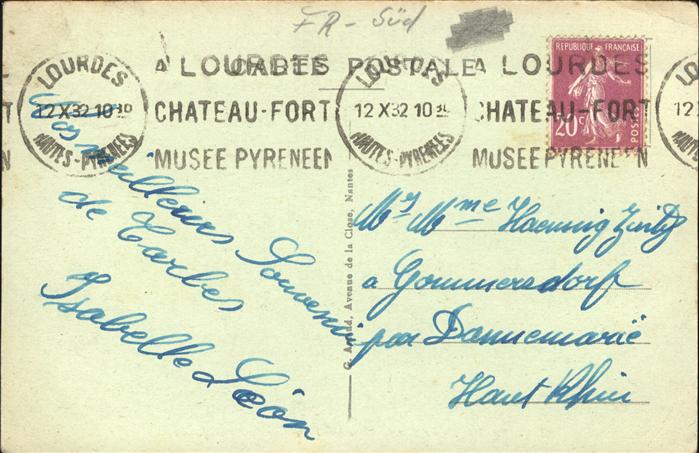 FR - Süd
CARTE POSTALE
A LOURDES
CHATEAU-FORT
MUSEE PYRENEEN
LOURDES
12 X 32 10 30
HAUTES-PYRENEES
LOURDES
12 X 32 10 30
HAUTES-PYRENEES
A LOURDES
CHATEAU-FORT
MUSEE PYRENEEN
REPUBLIQUE FRANÇAISE
20c
POSTES
meilleurs Souvenirs
de Tarbes
Isabelle Léon
Avenue de la Close, Nantes
Mr Mme Haennig
a Gommersdorf
par Dannemarie
Haut Rhin